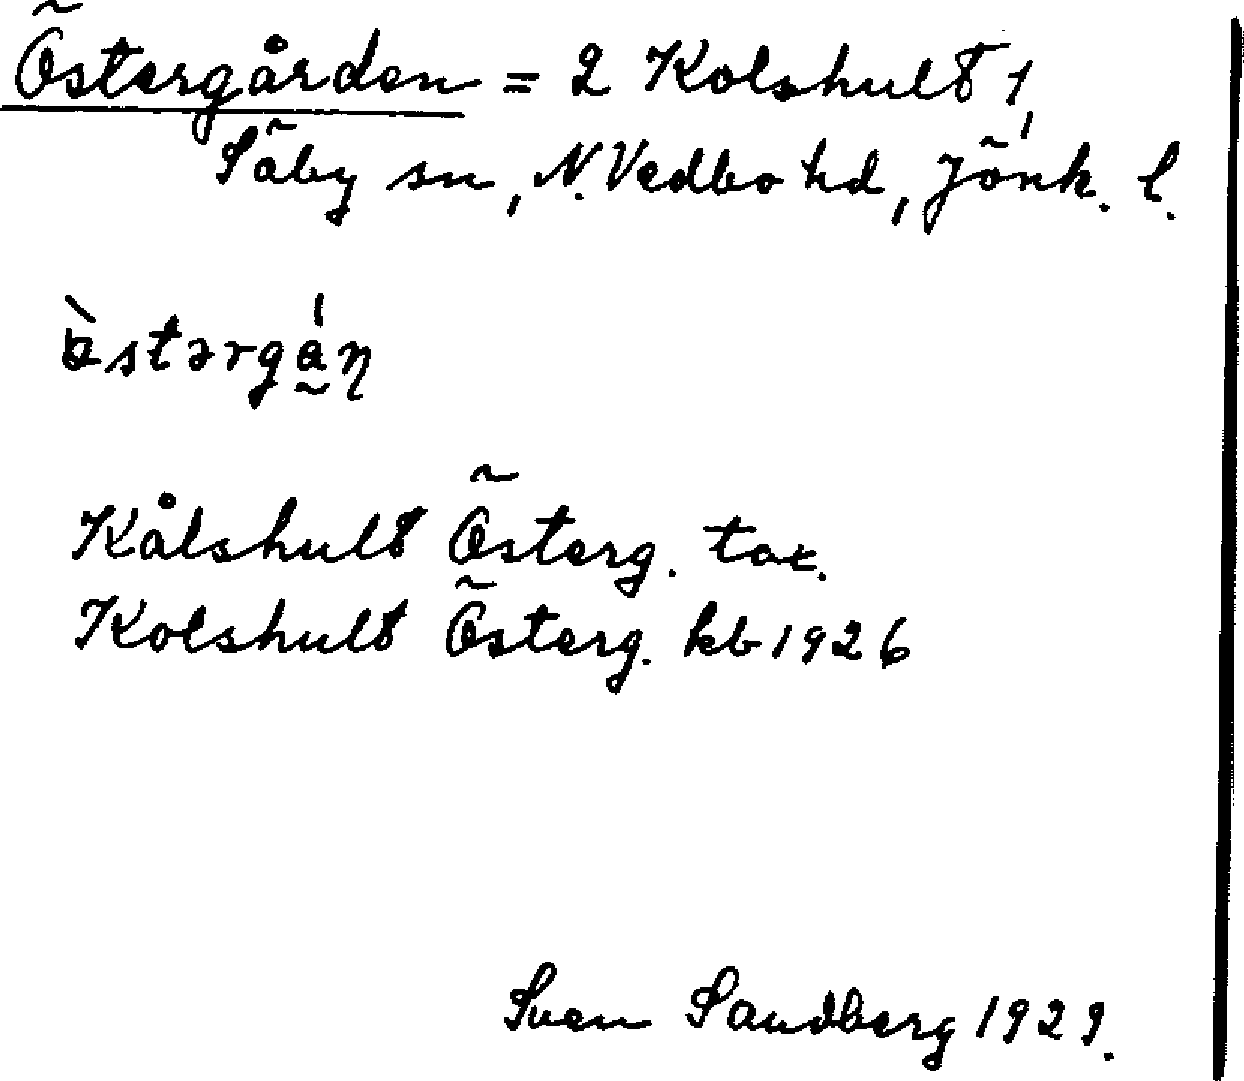 Östergården = 2 Kolshult 1,
Säby sn, N. Vedbo hd, Jönk. l.
östərgá̰ṇ
Kålshult Österg. tax.
Kolshult Österg. kb 1926
Sven Sandberg 1929.